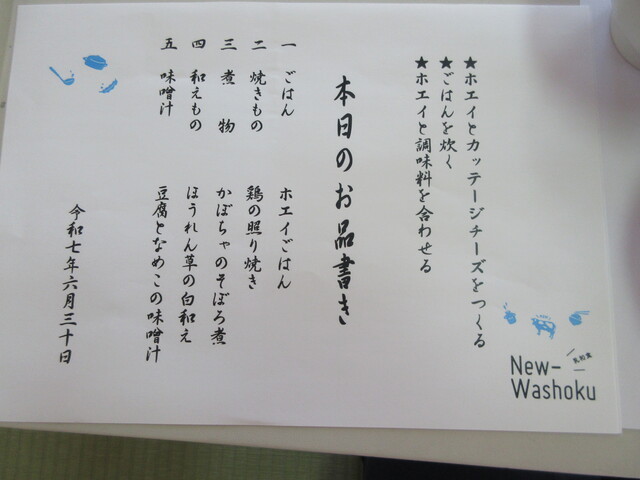 ★ホエイとカッテージチーズをつくる
★ごはんを炊く
★ホエイと調味料を合わせる
本日のお品書き
一 ごはん ホエイごはん
二 焼きもの 鶏の照り焼き
三 煮物 かぼちゃのそぼろ煮
四 和えもの ほうれん草の白和え
五 味噌汁 豆腐となめこの味噌汁
令和七年六月三十日
乳和食
New-
Washoku